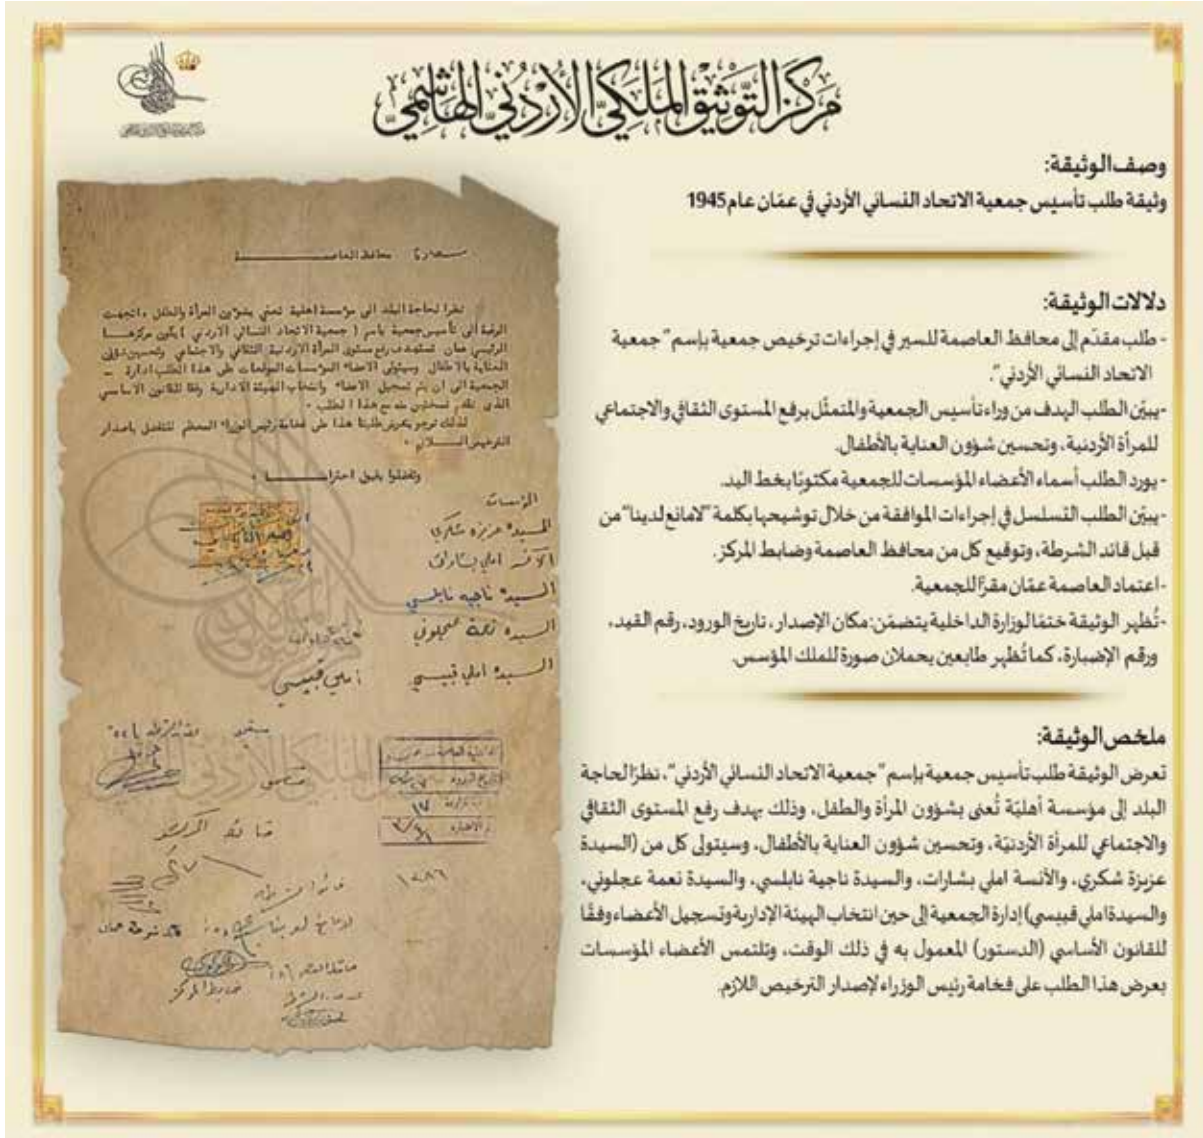 مركز التوثيق الملكي الأردني الهاشمي
وصف الوثيقة:
وثيقة طلب تأسيس جمعية الاتحاد النسائي الأردني في عمّان عام 1945
دلالات الوثيقة:
- طلب مقدّم إلى محافظ العاصمة للسير في إجراءات ترخيص جمعية بإسم "جمعية
الاتحاد النسائي الأردني".
-يبيّن الطلب الهدف من وراء تأسيس الجمعية والمتمثّل برفع المستوى الثقافي والاجتماعي
للمرأة الأردنية، وتحسين شؤون العناية بالأطفال.
- يورد الطلب أسماء الأعضاء المؤسسات للجمعية مكتوبًا بخط اليد.
-يبيّن الطلب التسلسل في إجراءات الموافقة من خلال توشيحها بكلمة "لامانع لدينا" من
قبل قائد الشرطة، وتوقيع كل من محافظ العاصمة وضابط المركز.
-اعتماد العاصمة عمّان مقرًا للجمعية.
-تُظهر الوثيقة ختمًا لوزارة الداخلية يتضمّن: مكان الإصدار، تاريخ الورود، رقم القيد،
ورقم الإضبارة، كما تُظهر طابعين يحملان صورة للملك المؤسس.
ملخص الوثيقة:
تعرض الوثيقة طلب تأسيس جمعية بإسم "جمعية الاتحاد النسائي الأردني"، نظرًا لحاجة
البلد إلى مؤسسة أهليّة تُعنى بشؤون المرأة والطفل، وذلك بهدف رفع المستوى الثقافي
والاجتماعي للمرأة الأردنيّة، وتحسين شؤون العناية بالأطفال، وسيتولى كل من (السيدة
عزيزة شكري، والآنسة املي بشارات، والسيدة ناجية نابلسي، والسيدة نعمة عجلوني،
والسيدة املي قبيسي) إدارة الجمعية إلى حين انتخاب الهيئة الإدارية وتسجيل الأعضاء وفقًا
للقانون الأساسي (الدستور) المعمول به في ذلك الوقت، وتلتمس الأعضاء المؤسسات
بعرض هذا الطلب على فخامة رئيس الوزراء لإصدار الترخيص اللازم.
محافظ العاصمة
نظرا لحاجة البلد الى مؤسسة اهلية تعنى بشؤون المرأة والطفل ، اتجهت
الرغبة إلى تأسيس جمعية باسم ( جمعية الاتحاد النسائي الاردني ) يكون مركزها
الرئيسي عمان تستهدف رفع مستوى المرأة الاردنية الثقافي والاجتماعي وتحسين شؤون
العناية بالاطفال وسيتولى الاعضاء المؤسسات الموقعات على هذا الطلب ادارة
الجمعية الى ان يتم تسجيل الاعضاء وانتخاب الهيئة الادارية وفقا للقانون الاساسي
الذي نقدم نسختين منه مع هذا الطلب .
لذلك نرجو بعرض طلبنا هذا على فخامة رئيس الوزراء المعظم للتفضل باصدار
الترخيص اللازم .
وتفضلوا بقبول احترامنا .
المؤسسات
السيدة عزيزة شكري
الآنسة املي بشارات
السيدة ناجيه نابلسي
السيدة نعمة عجلوني
السيدة املي قبيسي
املي قبيسي